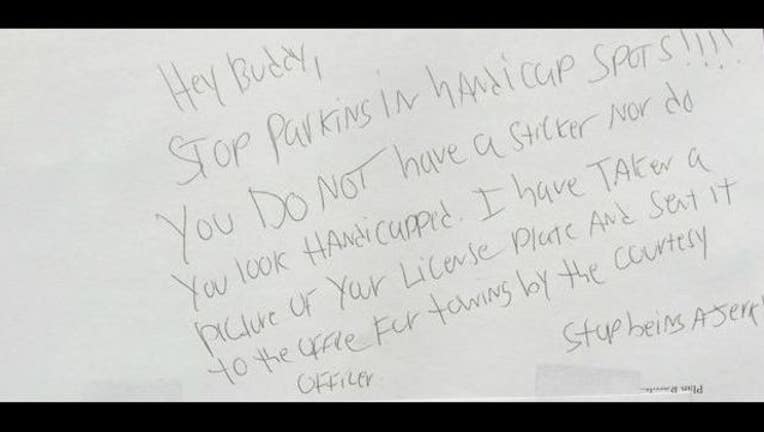 Hey Buddy,
STOP Parking IN hANdicap SPOTS!!!!
You DO NOT have a Sticker Nor do
You look HANdicapped. I have TAken a
picture of Your License plate And Sent it
to the office For towing by the courtesy
officer.
Stop being A Jerk!
Plan